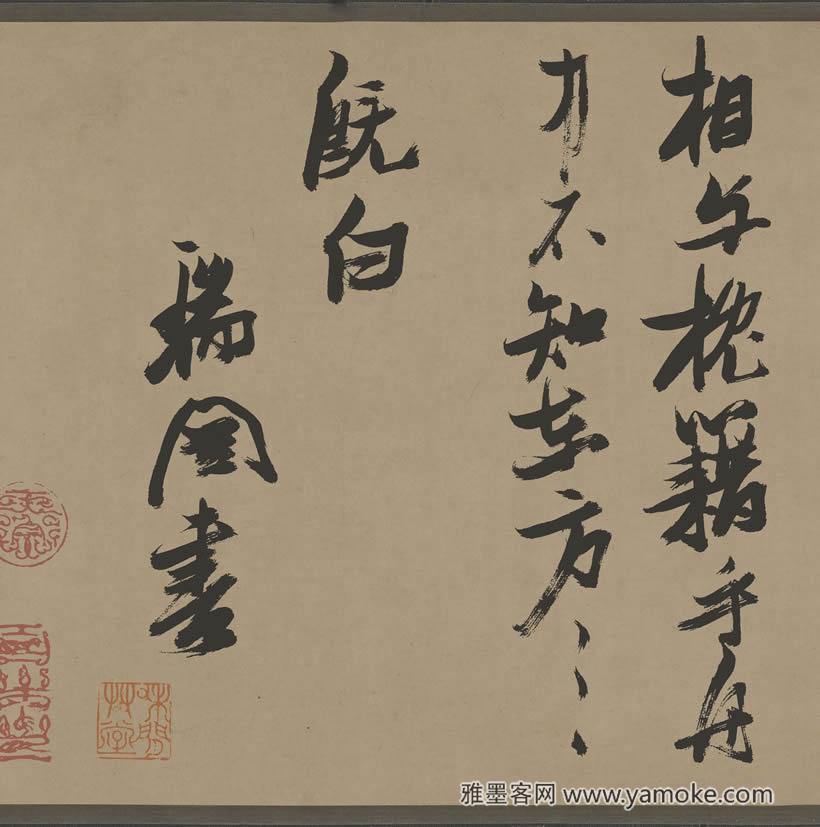 相与枕籍乎舟
中不知東方之
既白
瑞圖書
雅墨客网 www.yamoke.com